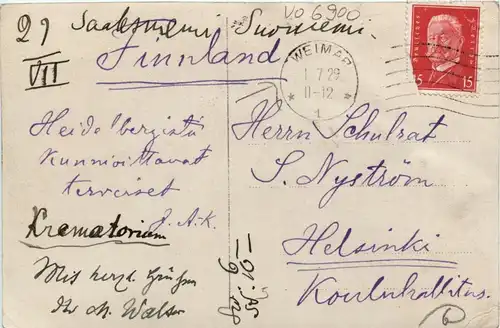 29
VII
Saalsniemi Suoniemi.
Finnland
vo 6900
WEIMAR
1.7.29
11-12
DEUTSCHES REICH
15 15
Heidelbergistä
kunnioittavat
terveiset
J. A-K.
Krematorium
Mit herzl. Grüßen
Ihr
Walser
Herrn Schulrat
S. Nyström
Helsinki
Kouluhallitus.